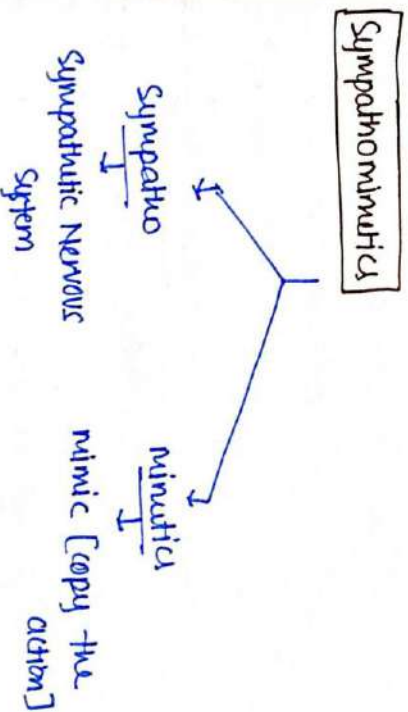 Sympathomimetics
Sympatho
Sympathetic Nervous
System
mimetics
mimic [copy the
action]